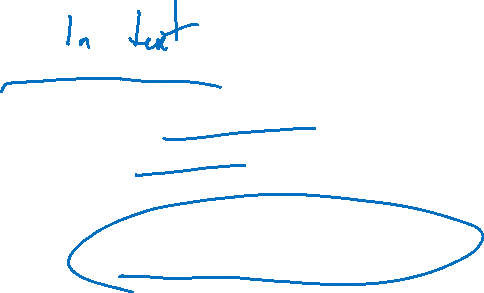 In text